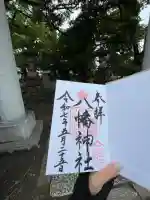 奉拝
八幡神社
令和七年五月二十五日